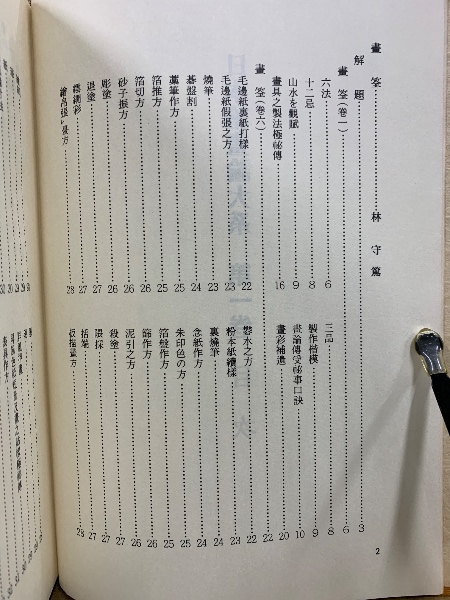 畫筌……林守篤
解題……3
畫筌（卷一）……6
六法……6
三品……8
十二忌……8
製作楷模……9
山水を觀賦……9
畫論傳受祕事口訣……10
畫具之製法極祕傳……16
畫彩補遺……20
畫筌（卷六）……22
毛邊紙裏紙打樣……22
礬水之方……22
毛邊紙假張之方……23
粉本紙續樣……23
燒筆……23
裏燒筆……24
碁盤割……24
念紙作方……24
藁筆作方……25
朱印色の方……25
箔推方……25
箔盤作方……25
箔切方……26
篩作方……26
砂子振方……26
泥引之方……26
彫塗……27
殺塗……27
退塗……27
隈採……27
繧繝彩……28
括端……27
張方……28
板描……方……28
2